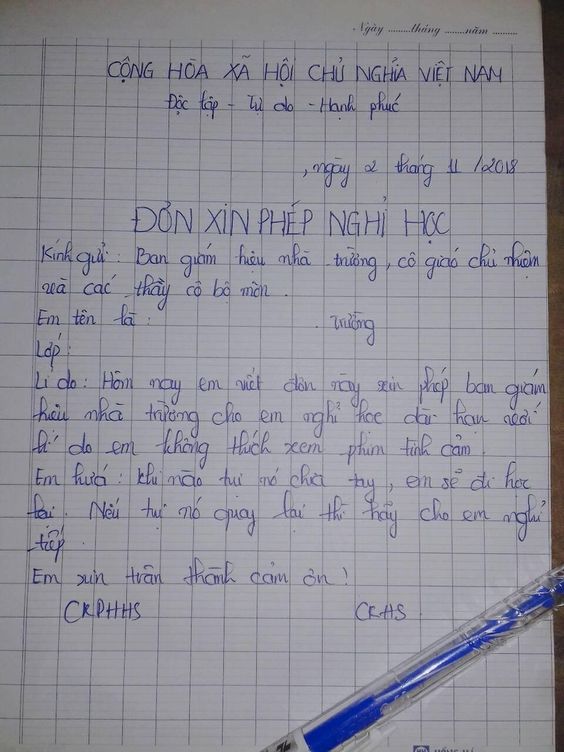 Ngày .........tháng ........năm ............
CỘNG HÒA XÃ HỘI CHỦ NGHĨA VIỆT NAM
Độc lập - Tự do - Hạnh phúc
, ngày 2 tháng 11 /2018
ĐƠN XIN PHÉP NGHỈ HỌC
Kính gửi : Ban giám hiệu nhà trường, cô giáo chủ nhiệm
và các thầy cô bộ môn .
Em tên là : . trường
Lớp :
Lí do : Hôm nay em viết đơn này xin phép ban giám
hiệu nhà trường cho em nghỉ học dài hạn với
lí do em không thích xem phim tình cảm .
Em hứa : khi nào tụi nó chia tay, em sẽ đi học
lại . Nếu tụi nó quay lại thì hãy cho em nghỉ
tiếp .
Em xin trân thành cảm ơn !
CKPHHS CKHS .